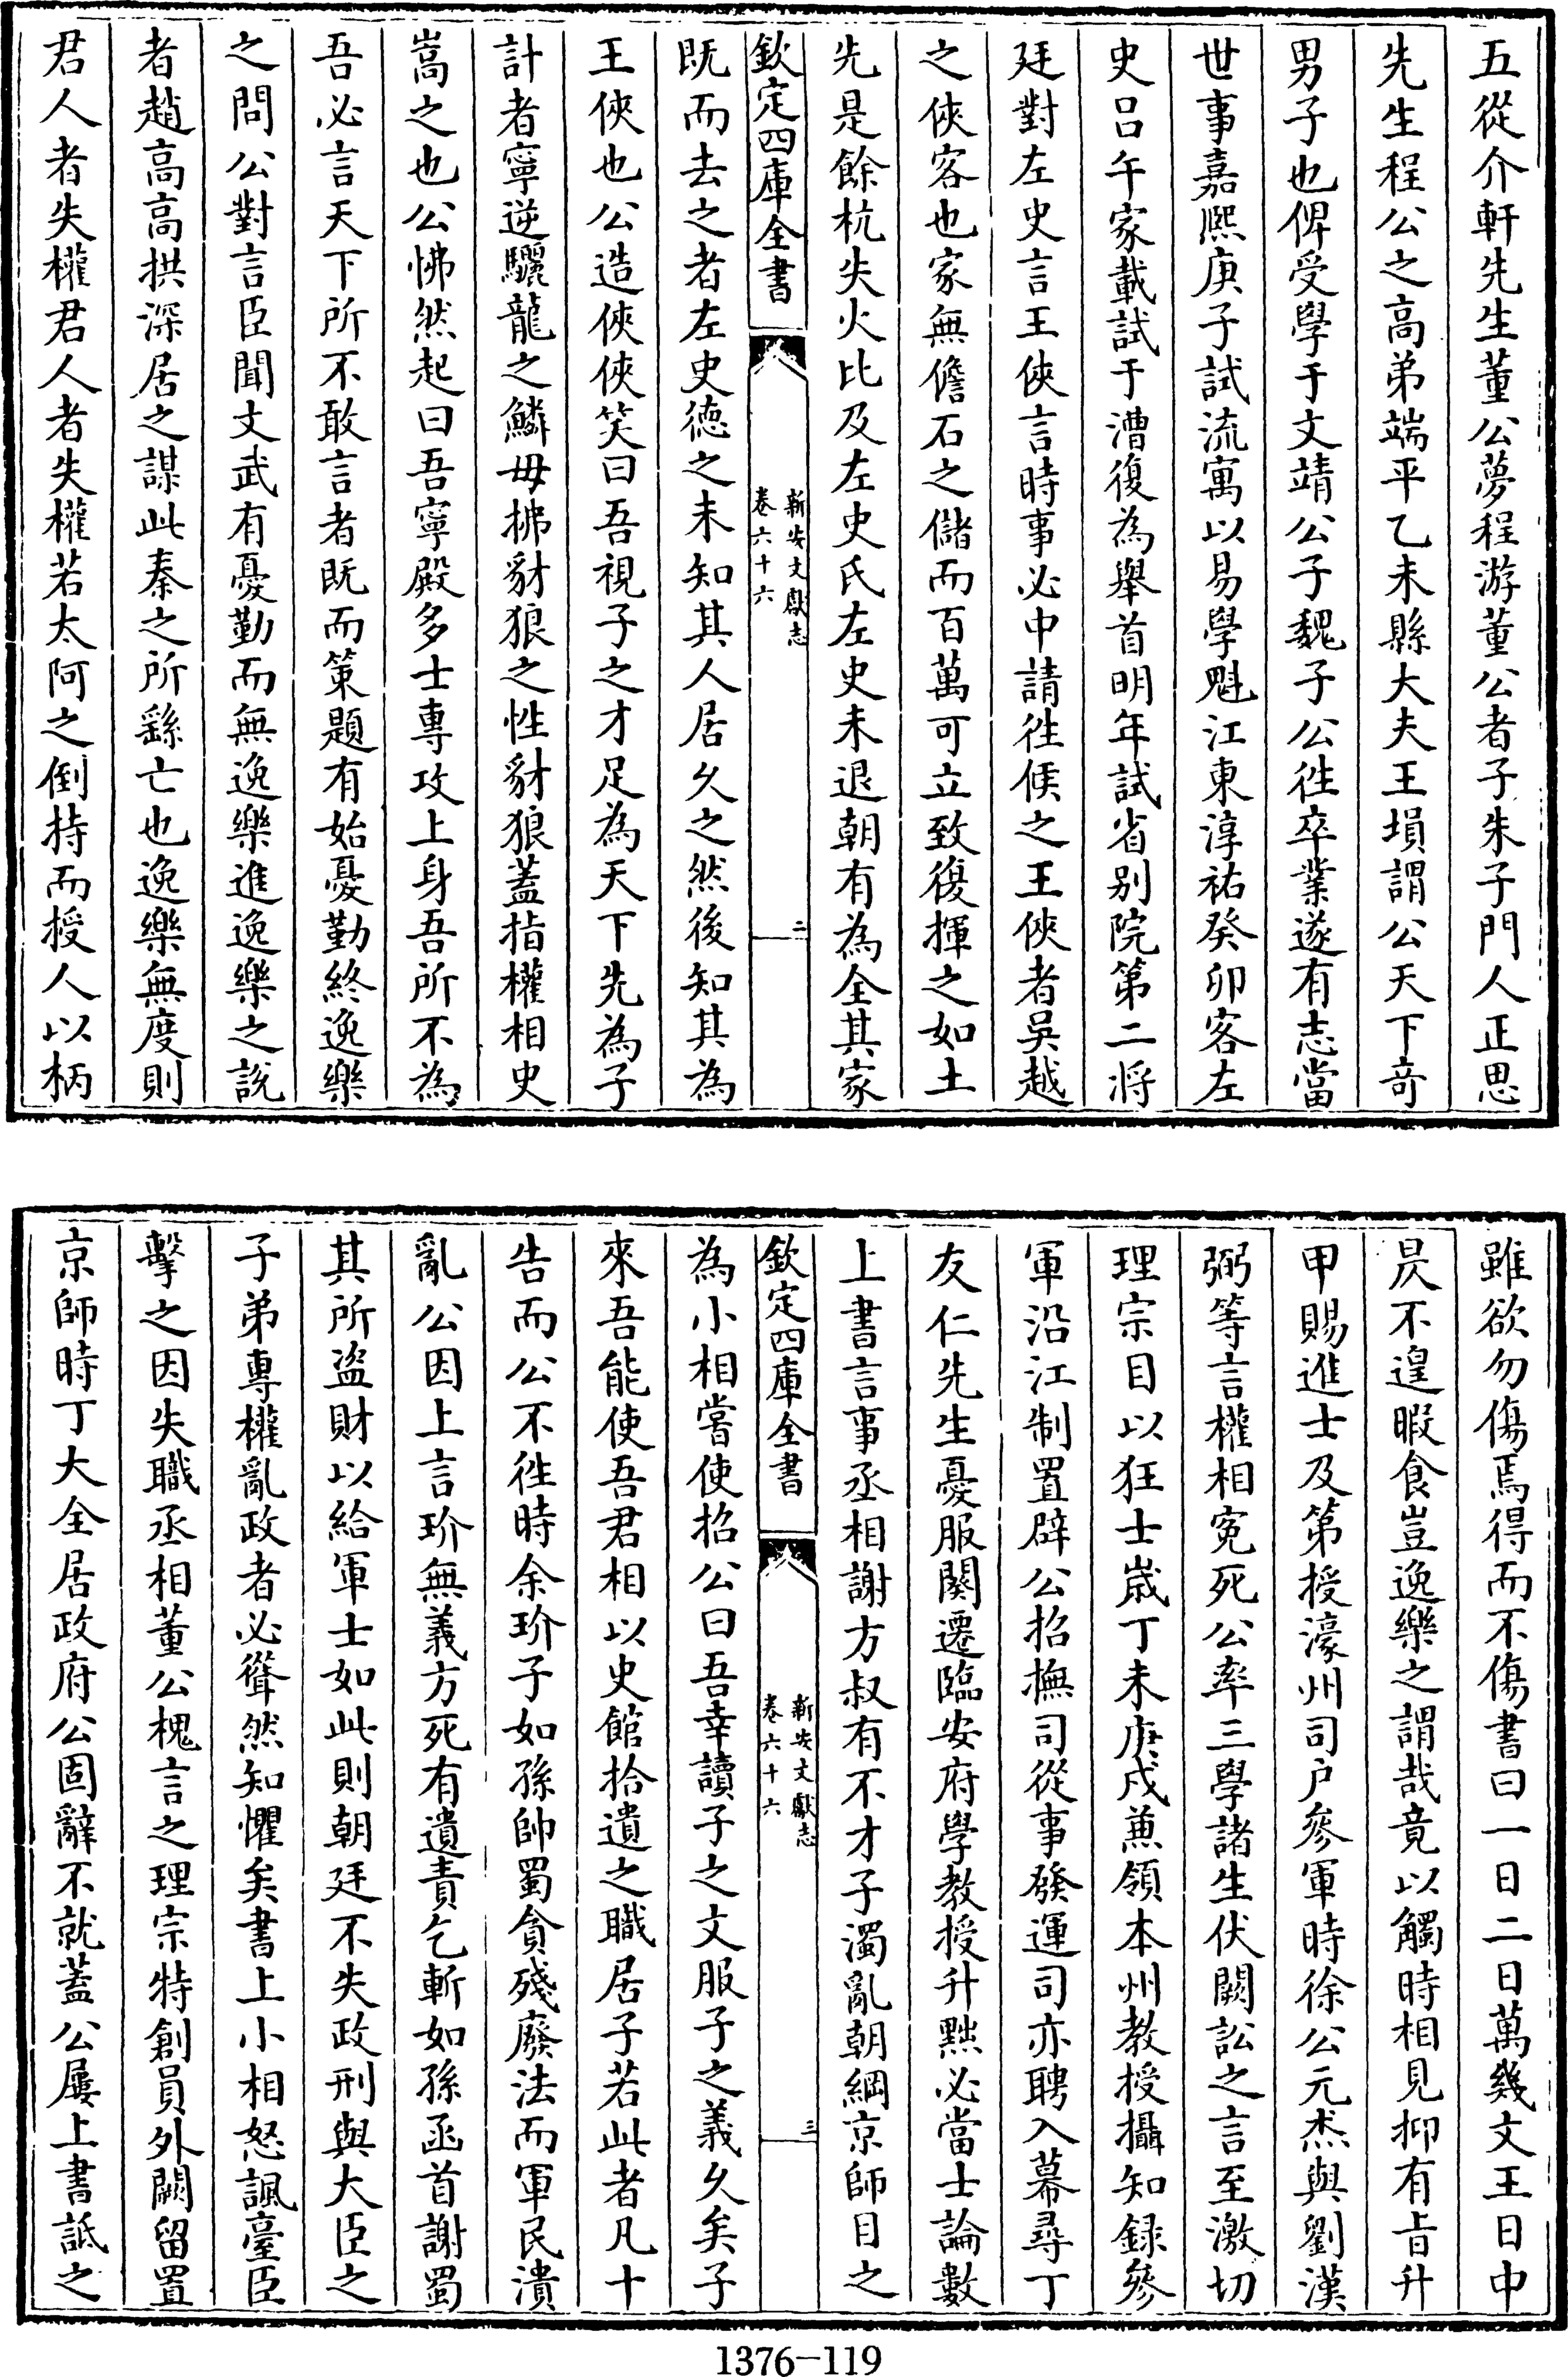 五從介軒先生董公夢程游董公者子朱子門人正思
先生程公之高弟端平乙未縣大夫王塤謂公天下竒
男子也俾受學于文靖公子魏子公徃卒業遂有志當
世事嘉熙庚子試流寓以易學魁江東淳祐癸卯客左
史吕午家載試于漕復為舉首明年試省别院第二將
廷對左史言王俠言時事必中請徃候之王俠者吳越
之俠客也家無儋石之儲而百萬可立致復揮之如土
先是餘杭失火比及左史氏左史未退朝有為全其家
欽定四庫全書
新安文獻志
卷六十六
二
既而去之者左史德之未知其人居乆之然後知其為
王俠也公造俠俠笑曰吾視子之才足為天下先為子
計者寧逆驪龍之鱗毋拂豺狼之性豺狼蓋指權相史
嵩之也公怫然起曰吾寧殿多士專攻上身吾所不為
吾必言天下所不敢言者既而策題有始憂勤終逸樂
之問公對言臣聞文武有憂勤而無逸樂進逸樂之說
者趙高高拱深居之謀此秦之所繇亡也逸樂無度則
君人者失權君人者失權若太阿之倒持而授人以柄
雖欲勿傷焉得而不傷書曰一日二日萬幾文王日中
昃不遑暇食豈逸樂之謂哉竟以觸時相見抑有㫖升
甲賜進士及第授濠州司户參軍時徐公元杰與劉漢
弼等言權相寃死公率三學諸生伏闕訟之言至激切
理宗目以狂士嵗丁未庚戍兼領本州教授攝知録參
軍沿江制置辟公招撫司從事發運司亦聘入幕尋丁
友仁先生憂服闋遷臨安府學教授升黜必當士論數
上書言事丞相謝方叔有不才子濁亂朝綱京師目之
欽定四庫全書
新安文獻志
卷六十六
三
為小相嘗使招公曰吾幸讀子之文服子之義乆矣子
來吾能使吾君相以史館拾遺之職居子若此者凡十
告而公不徃時余玠子如孫帥蜀貪殘廢法而軍民潰
亂公因上言玠無義方死有遺責乞斬如孫函首謝蜀
其所盗財以給軍士如此則朝廷不失政刑與大臣之
子弟專權亂政者必聳然知懼矣書上小相怒諷臺臣
擊之因失職丞相董公槐言之理宗特創員外闕留置
京師時丁大全居政府公固辭不就蓋公屢上書詆之
1376—119